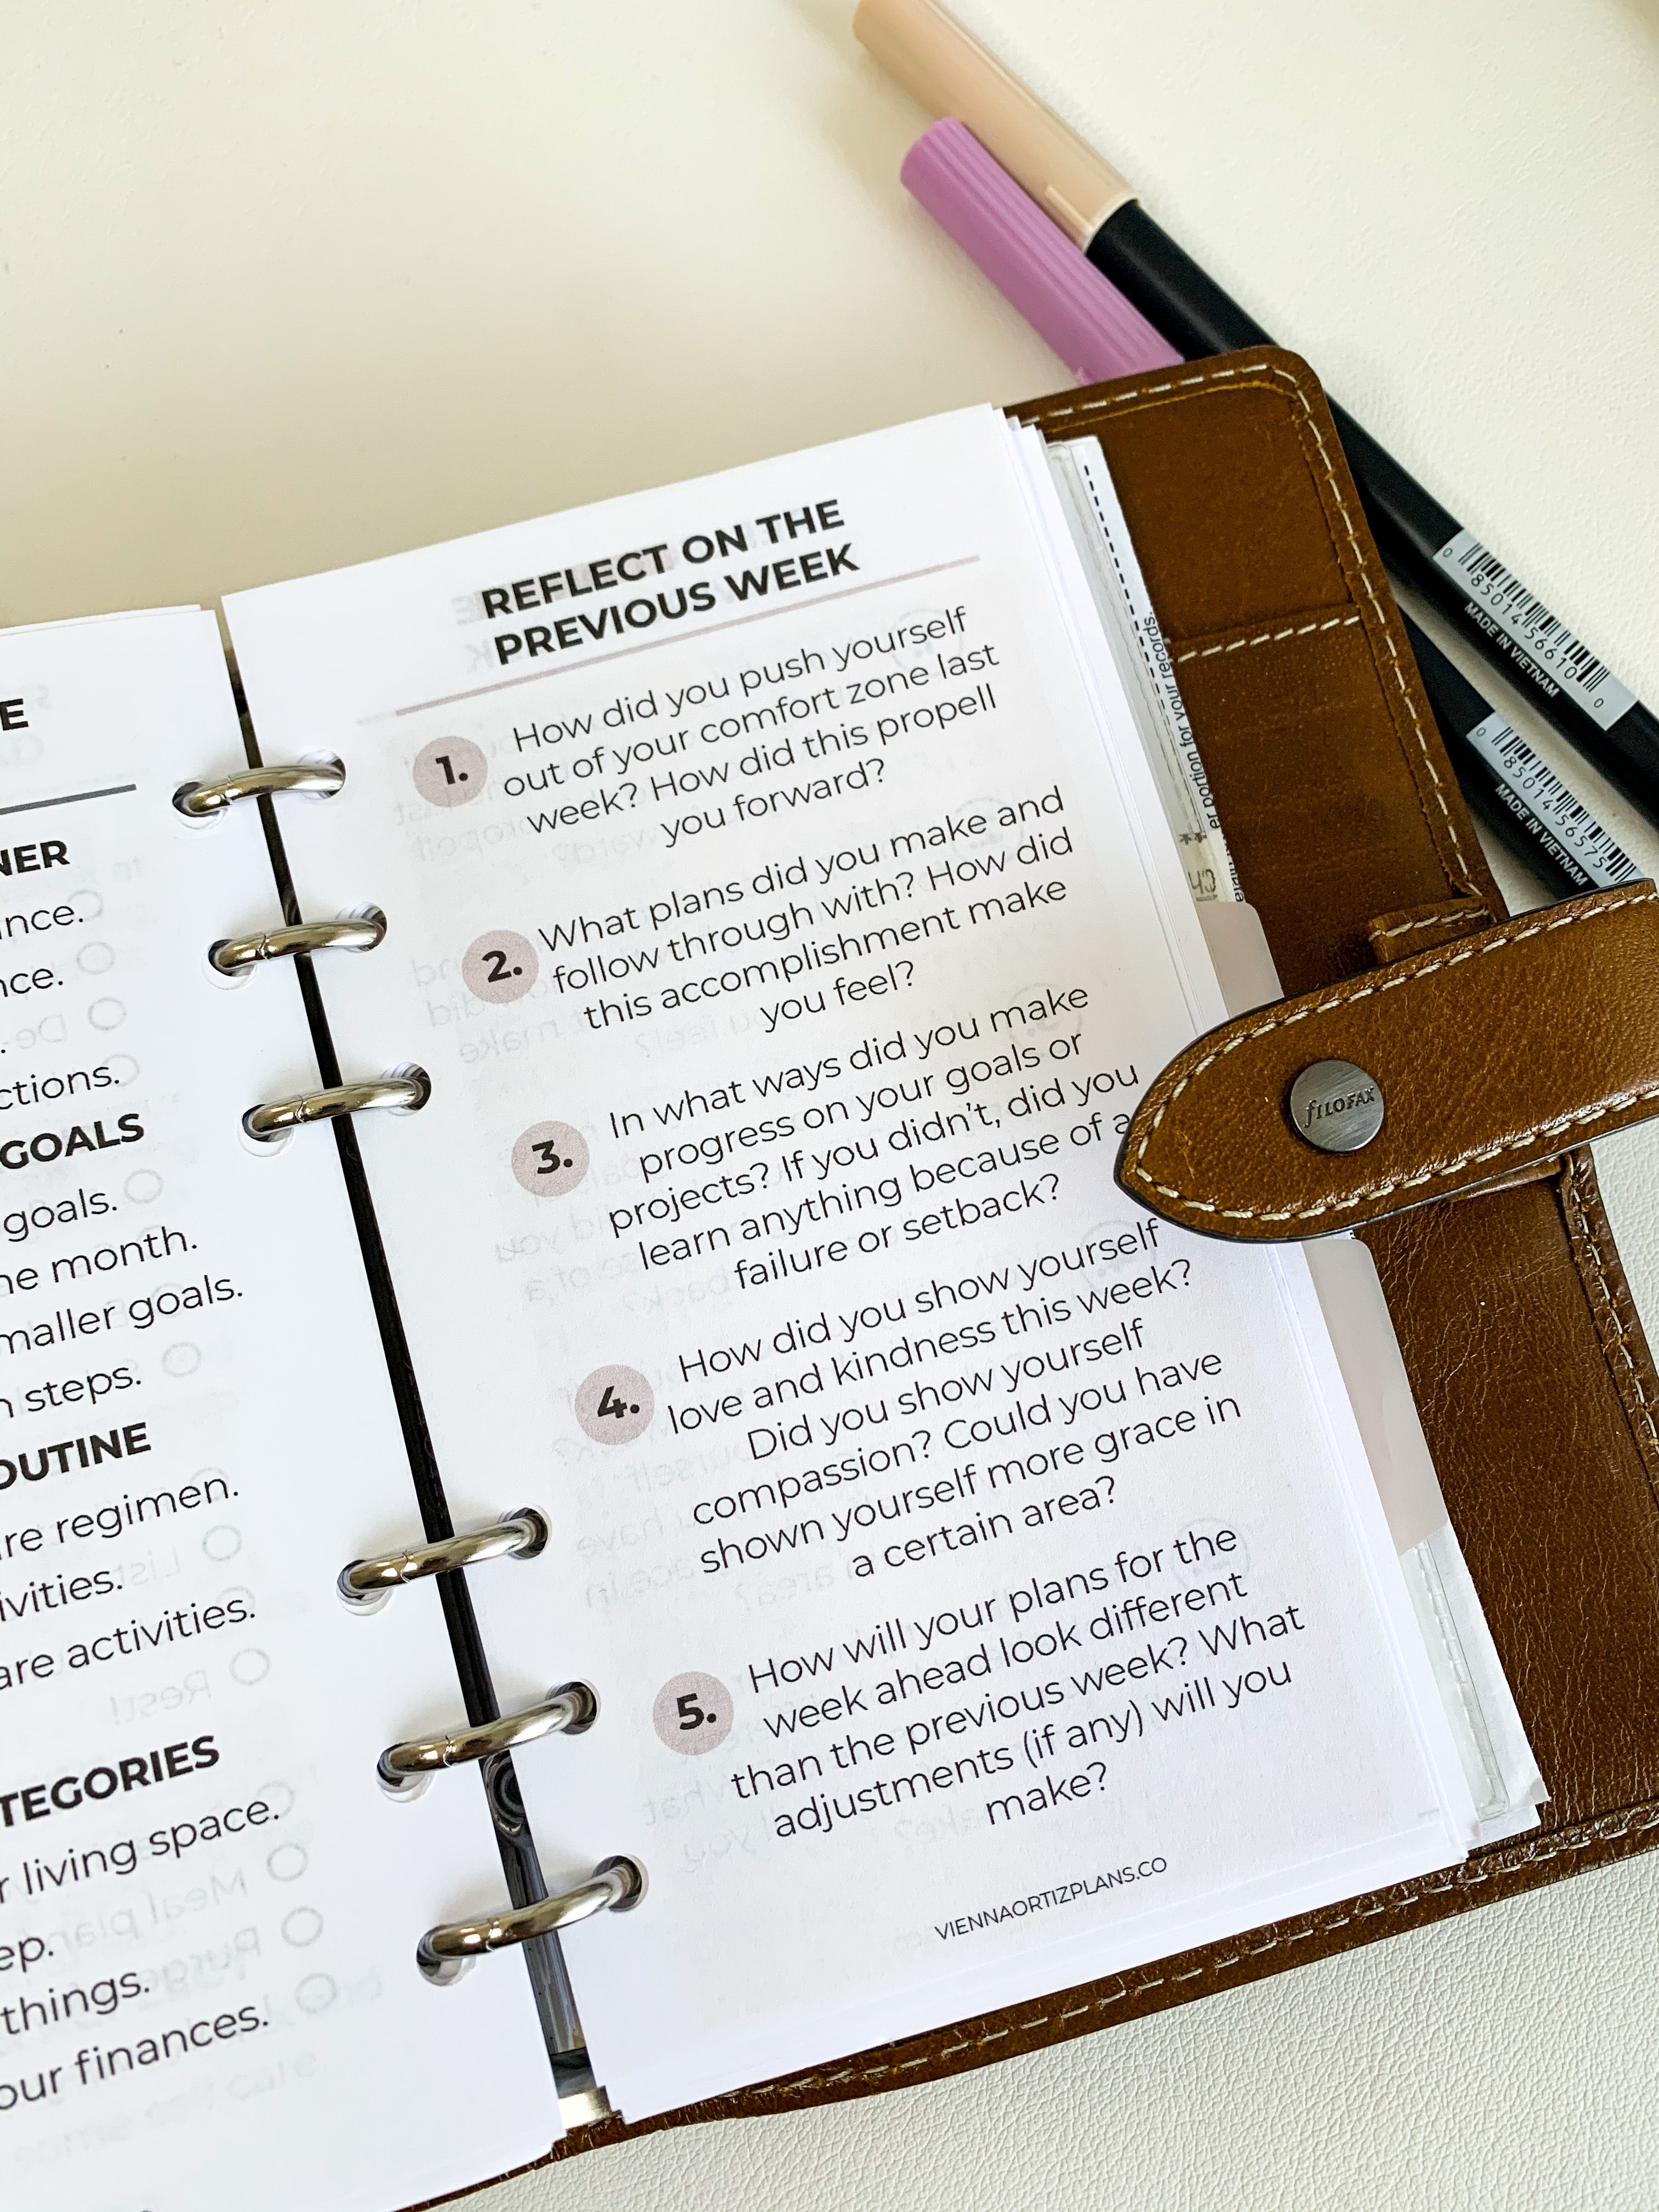 E
NER
nce.
GOALS
goals.
month.
goals.
steps.
regimen.
activities.
living space.
things.
finances.
REFLECT ON THE
PREVIOUS WEEK
1.
How did you push yourself
out of your comfort zone last
week? How did this propell
you forward?
2.
What plans did you make and
follow through with? How did
this accomplishment make
you feel?
3.
In what ways did you make
progress on your goals or
projects? If you didn't, did you
learn anything because of a
failure or setback?
4.
How did you show yourself
love and kindness this week?
Did you show yourself
compassion? Could you have
shown yourself more grace in
a certain area?
5.
How will your plans for the
week ahead look different
than the previous week? What
adjustments (if any) will you
make?
VIENNAORTIZPLANS.CO
portion for your records.
filofax
0 85014 56610 0
MADE IN VIETNAM
0 85014 56575
MADE IN VIETNAM